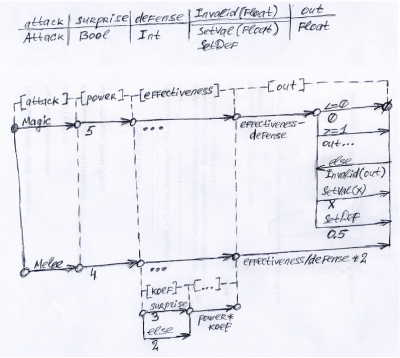 attack | surprise | defense | Invalid(Float) | out
Attack | Bool | Int | SetVal(Float) | Float
SetDef
[attack] [power] [effectiveness] [out]
Magic 5 ... effectiveness-
defense
<=0
0
>=1
out...
else
Invalid(out)
SetVal(x)
x
SetDef
0.5
Melee 4 ... effectiveness/defense*2
[koef] [...]
surprise
3
power*
koef
else
2